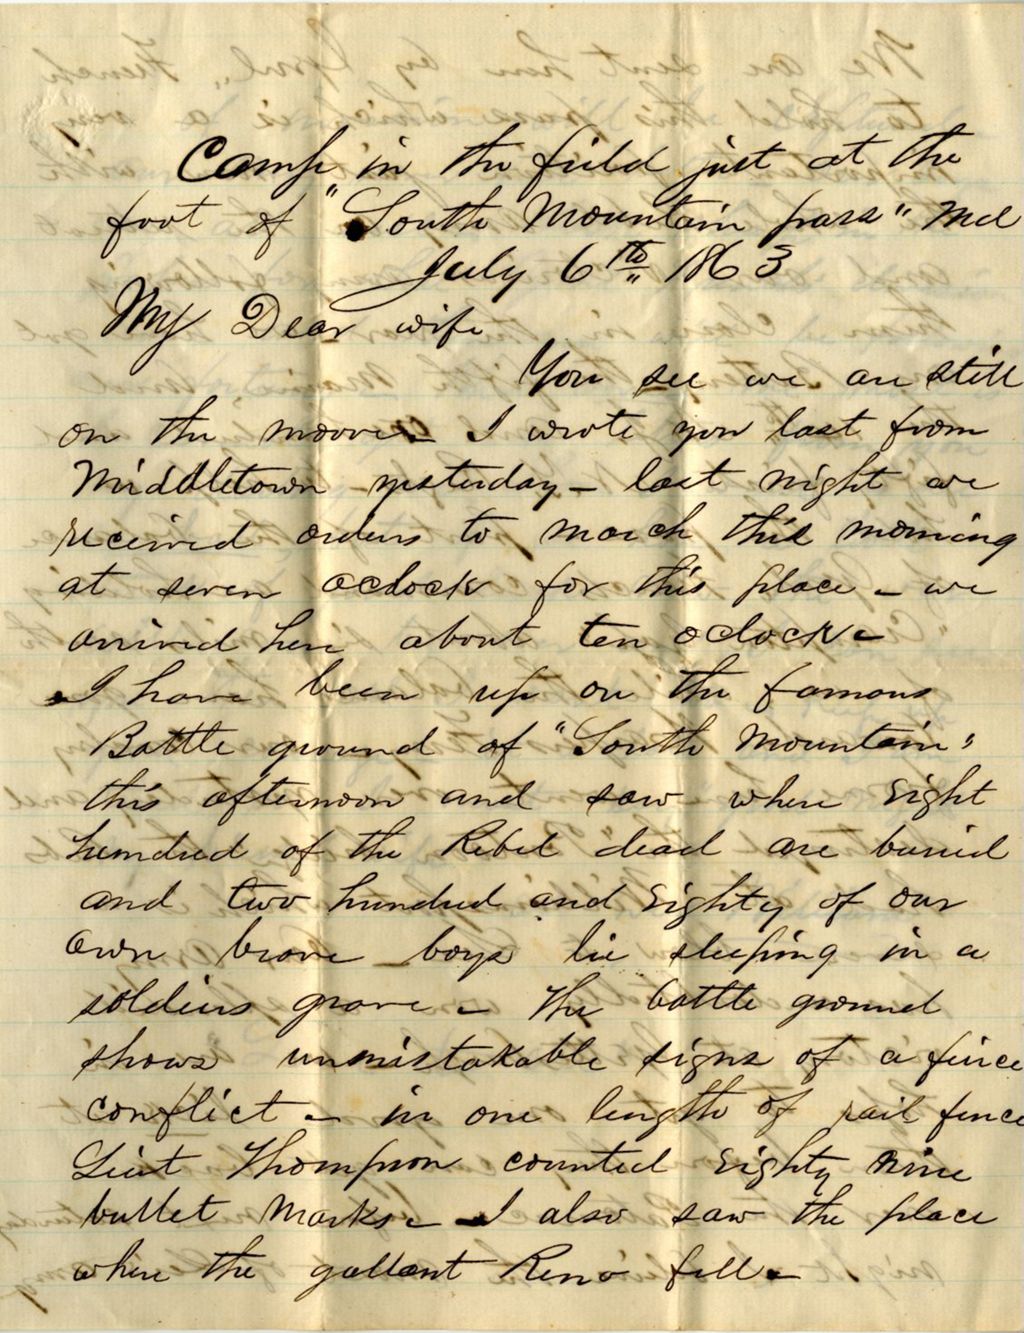 Camp in the field just at the
foot of "South Mountain pass" Md
July 6th 1863
My Dear wife
You see we are still
on the moove - I wrote you last from
Middletown yesterday - last night we
received orders to march this morning
at seven oclock for this place - we
arrived here about ten oclock -
I have been up on the famous
Battle ground of "South Mountain"
this afternoon and saw where Eight
hundred of the Rebel dead are buried
and two hundred and Eighty of our
own brave boys lie sleeping in a
soldiers grave - The battle ground
shows unmistakable signs of a fierce
conflict - in one length of rail fence
Lieut Thompson counted Eighty nine
bullet marks - I also saw the place
where the gallant Reno fell -